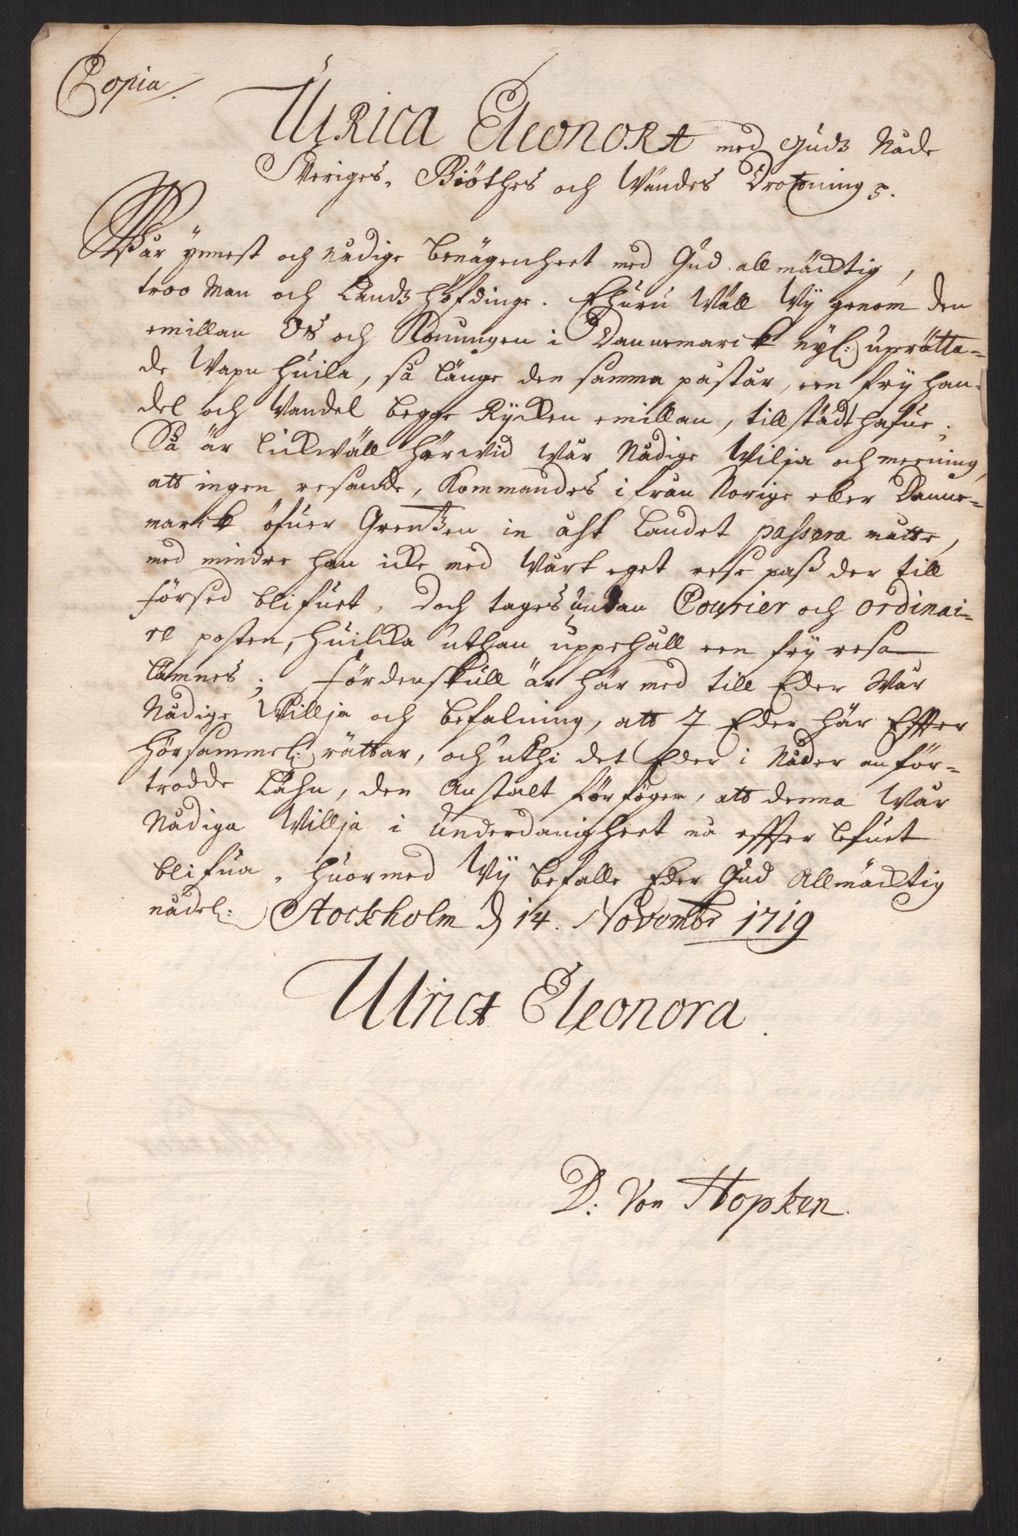 Copia.
Ulrica Eleonora med Gudz Nåde
Sveriges, Giöthes och Wändes Drottning
Wår ynnest och nådige benägenheet med Gud allmächtig,
troo Man och Landzhöfdinge. Ehuru Wäll Wy genom den
emillan Oss och Konungen i Dannemarck nyl: uprätta-
de Vapn huila, så länge den samma påstår, een fry han-
del och Wandel begge Rycken emillan, tillstädt hafue;
Så är licke wäll härwid Wår Nådige Wilja och meening,
att ingen resande, Kommandes ifrån Norige eller Danne-
marck öfuer Gräntzen in uthi Landet passera måtte,
med mindre han icke med Wårt eget resepass der till
försed blifuet, doch tages undan Courier och ordinai-
re posten, huilcka uthan uppehåll een fry resa
lämnes; Fördenskull är här med till Eder Wår
Nådige Willja och befalning, att I Eder här effter
hörsammel: rättar, och uthi det Eder i Nåder anför-
trodde Lähn, den Anstalt förfoger, att denna Wår
Nådiga Willja i underdånigheet må effterlefuet
blifua, huormed Wy befalle Eder Gud Allmächtig
nådel: Stockholm d 14. Novembr 1719
Ulrica Eleonora.
D: Von Höpken.